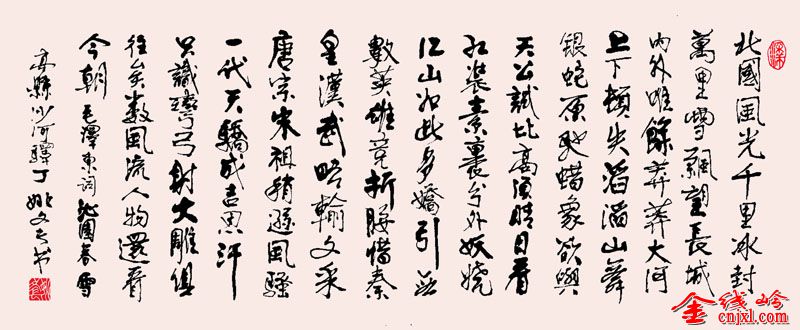 北國風光千里冰封
萬里雪飄望長城
内外唯餘莽莽大河
上下頓失滔滔山舞
銀蛇原馳蜡象欲與
天公試比高須晴日看
红裝素裹分外妖嬈
江山如此多嬌引无
數英雄竞折腰惜秦
皇漢武略輸文采
唐宗宋祖稍遜風騷
一代天驕成吉思汗
只識彎弓射大雕俱
往矣数風流人物還看
今朝 毛澤東詞 沁園春雪
縣沙河驛 姚文
金线岭
cnjxl.com